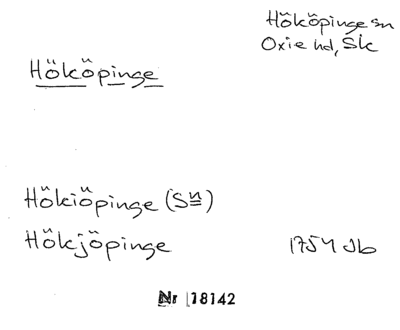 Hököpinge sn
Oxie hd, Sk
Hököpinge
Hökiöpinge (Sn)
Hökjöpinge 1754 Jb
Nr 18142